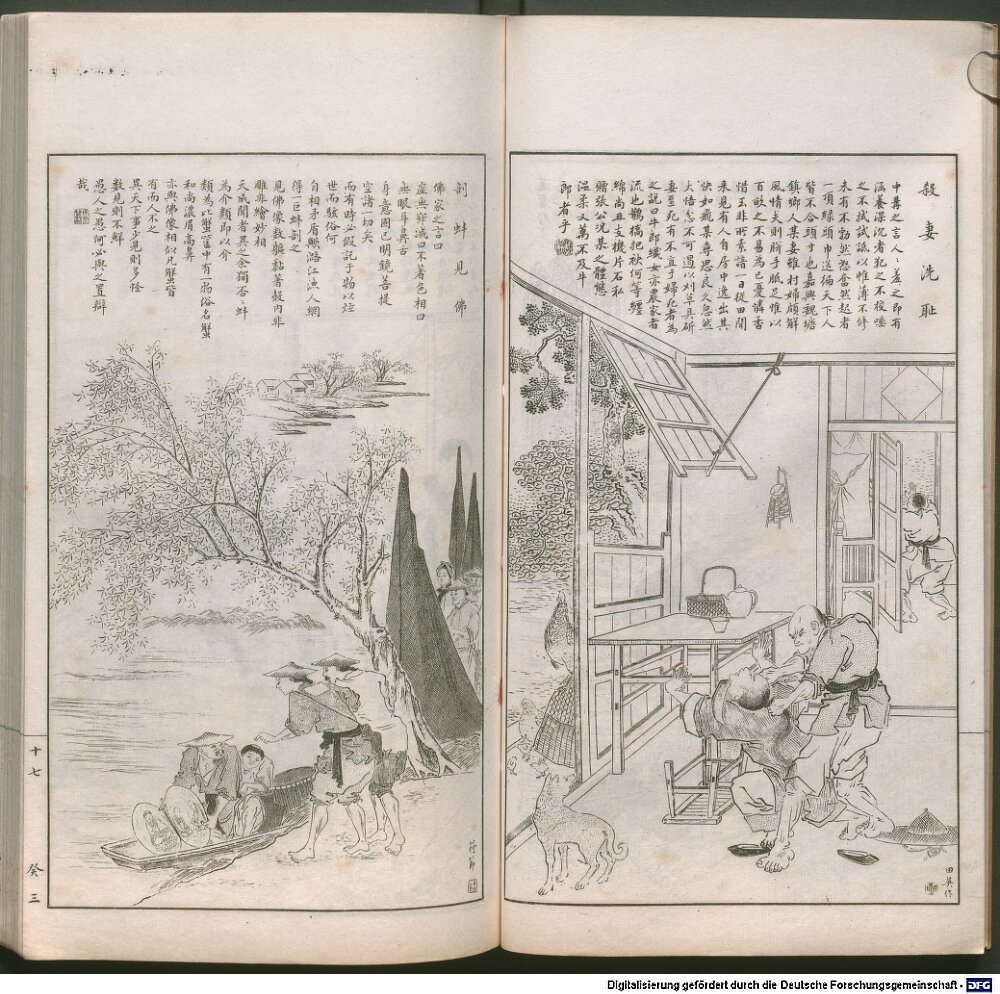 殺妻洗恥
中冓之言人人羞之即有
涵養深沈者犯之不校唾
之不拭試詆以帷薄不修
未有不勃然怒奮然起者
一頂綠頭巾送徧天下人
皆不合頭寸也嘉興觀塘
鎮鄉人某妻雖村婦頗解
風情夫則胼手胝足惟以
百畝之不易為己憂憐香
惜玉非所素諳一日從田間
來見有人自房中逸出其
快如痴某尋思良久忽然
大悟怒不可遏以刈草具斫
妻立死有不直于婦死者為
之說曰牛郎織女亦農家者
流也鵲橋把袂何等纏
綿尚且支機片石私
贈張公況某之體態
溫柔又萬不及牛
郎者乎
田英作
剖蚌見佛
佛家之言曰
虛無寂滅曰不著色相曰
無眼耳鼻舌
身意固已明鏡菩提
空諸一切矣
而有時必假託于物以炫
世而駭俗何
自相矛盾歟潞江漁人網
得一巨蚌剖之
見佛像數軀黏著殼內非
雕非繪妙相
天成聞者異之余獨否否蚌
為介類即以介
類為比蟹筐中有一物俗名蟹
和尚濃眉高鼻
亦與佛像相似凡蟹皆
有而人不之
異天下事少見則多怪
數見則不鮮
愚人之愚何必與之置辯
哉
符節
十七
癸三
Digitalisierung gefördert durch die Deutsche Forschungsgemeinschaft - DFG